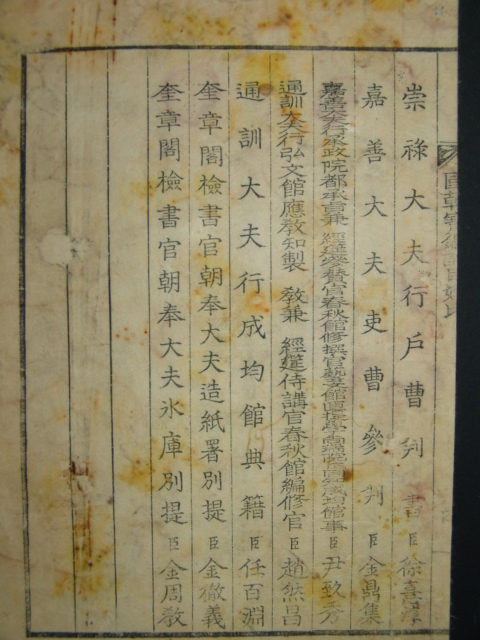 國朝寶鑑
崇祿大夫行戶曹判書臣徐憙淳
嘉善大夫吏曹參判臣金鼎集
嘉善大夫行承政院都承旨兼 經筵參贊官春秋館修撰官藝文館直提學尙瑞院正 成均館事臣尹致秀
通訓大夫行弘文館應敎知製 敎兼 經筵侍講官春秋館編修官臣趙然昌
通訓大夫行成均館典籍臣任百淵
奎章閣檢書官朝奉大夫造紙署別提臣金徹義
奎章閣檢書官朝奉大夫氷庫別提臣金周敎